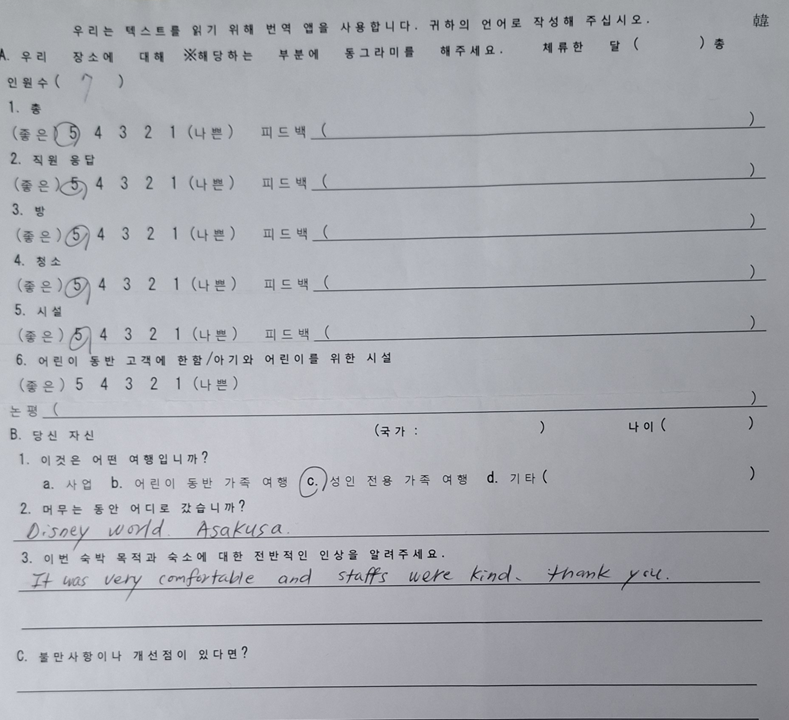 우리는 텍스트를 읽기 위해 번역 앱을 사용합니다. 귀하의 언어로 작성해 주십시오. 韓
A. 우리 장소에 대해 ※해당하는 부분에 동그라미를 해주세요. 체류한 달 ( ) 총
인원수 ( 7 )
1. 총
(좋은) 5 4 3 2 1 (나쁜) 피드백 ( )
2. 직원 응답
(좋은) 5 4 3 2 1 (나쁜) 피드백 ( )
3. 방
(좋은) 5 4 3 2 1 (나쁜) 피드백 ( )
4. 청소
(좋은) 5 4 3 2 1 (나쁜) 피드백 ( )
5. 시설
(좋은) 5 4 3 2 1 (나쁜) 피드백 ( )
6. 어린이 동반 고객에 한함/아기와 어린이를 위한 시설
(좋은) 5 4 3 2 1 (나쁜)
논평 ( )
B. 당신 자신 (국가 : ) 나이 ( )
1. 이것은 어떤 여행입니까?
a. 사업 b. 어린이 동반 가족 여행 c. 성인 전용 가족 여행 d. 기타 ( )
2. 머무는 동안 어디로 갔습니까?
Disney world. Asakusa.
3. 이번 숙박 목적과 숙소에 대한 전반적인 인상을 알려주세요.
It was very comfortable and staffs were kind. thank you.
C. 불만사항이나 개선점이 있다면?